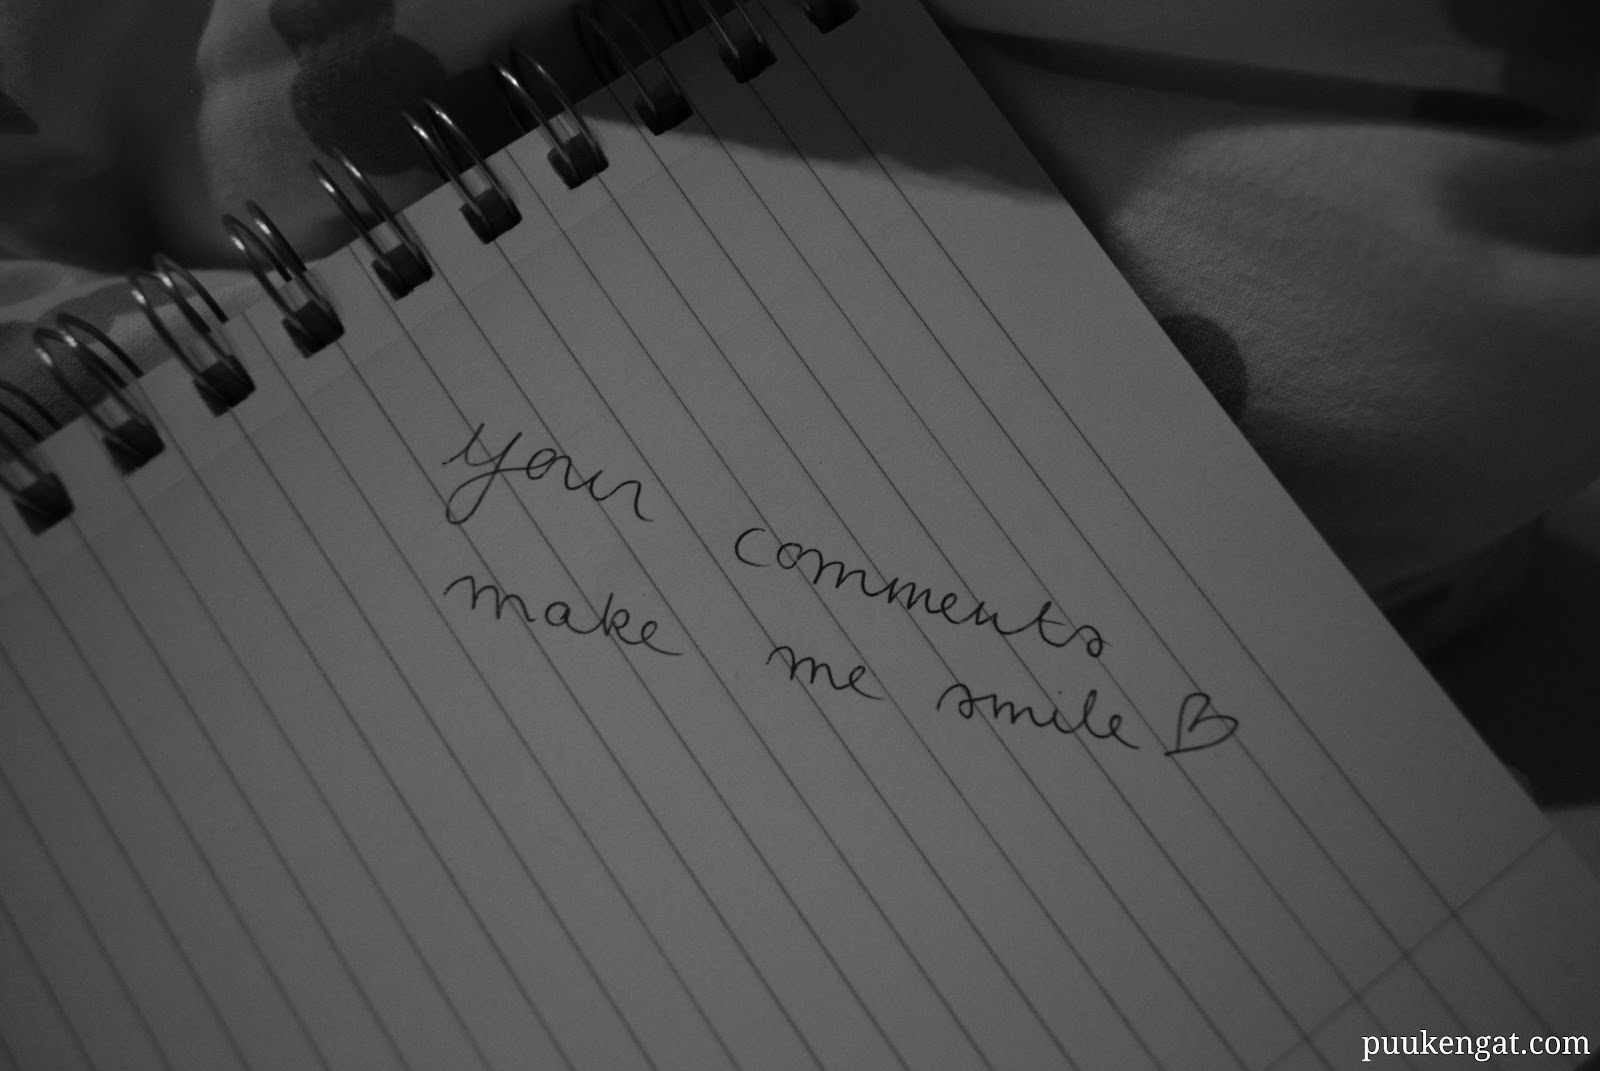 your comments
make me smile
puukengat.com